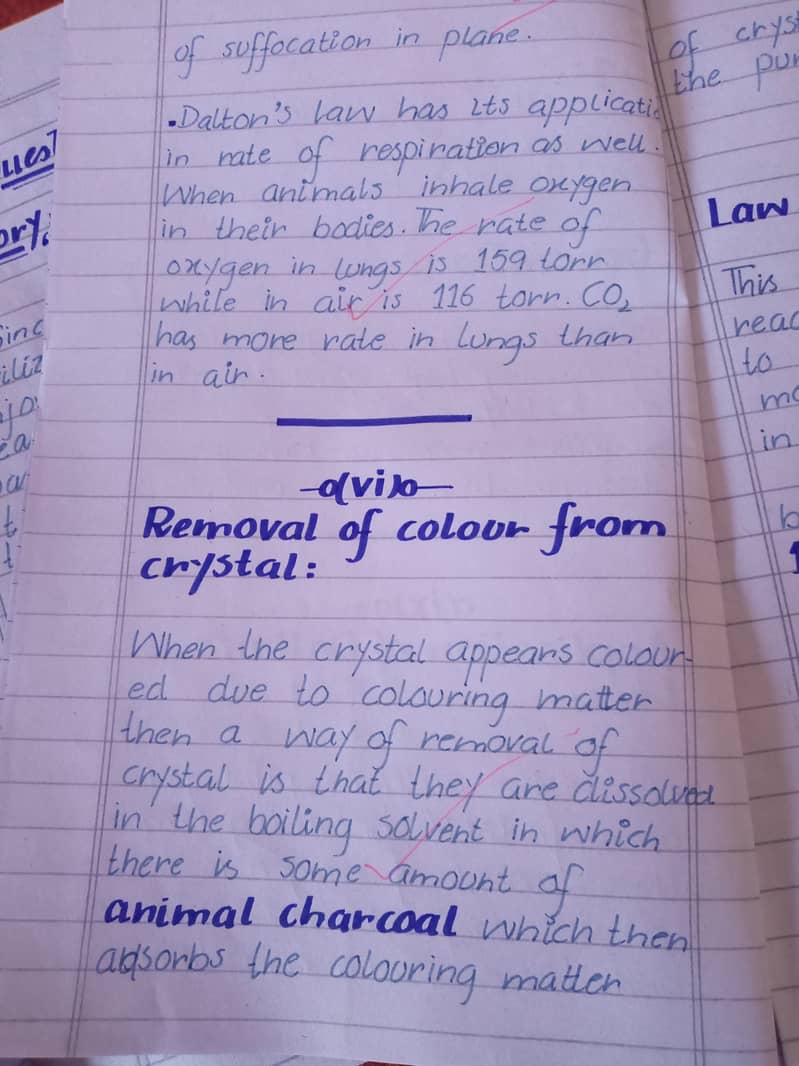 of suffocation in plane.
.Dalton's law has its applicati
in rate of respiration as well.
When animals inhale oxygen
in their bodies. The rate of
oxygen in lungs is 159 torr
while in air is 116 torr. CO₂
has more rate in lungs than
in air.
(vi)
Removal of colour from
crystal:
When the crystal appears colour-
ed due to colouring matter
then a way of removal of
crystal is that they are dissolved
in the boiling solvent in which
there is some amount of
animal charcoal which then
adsorbs the colouring matter
of crys
the pur
Law
This
reac
to
mo
in
b